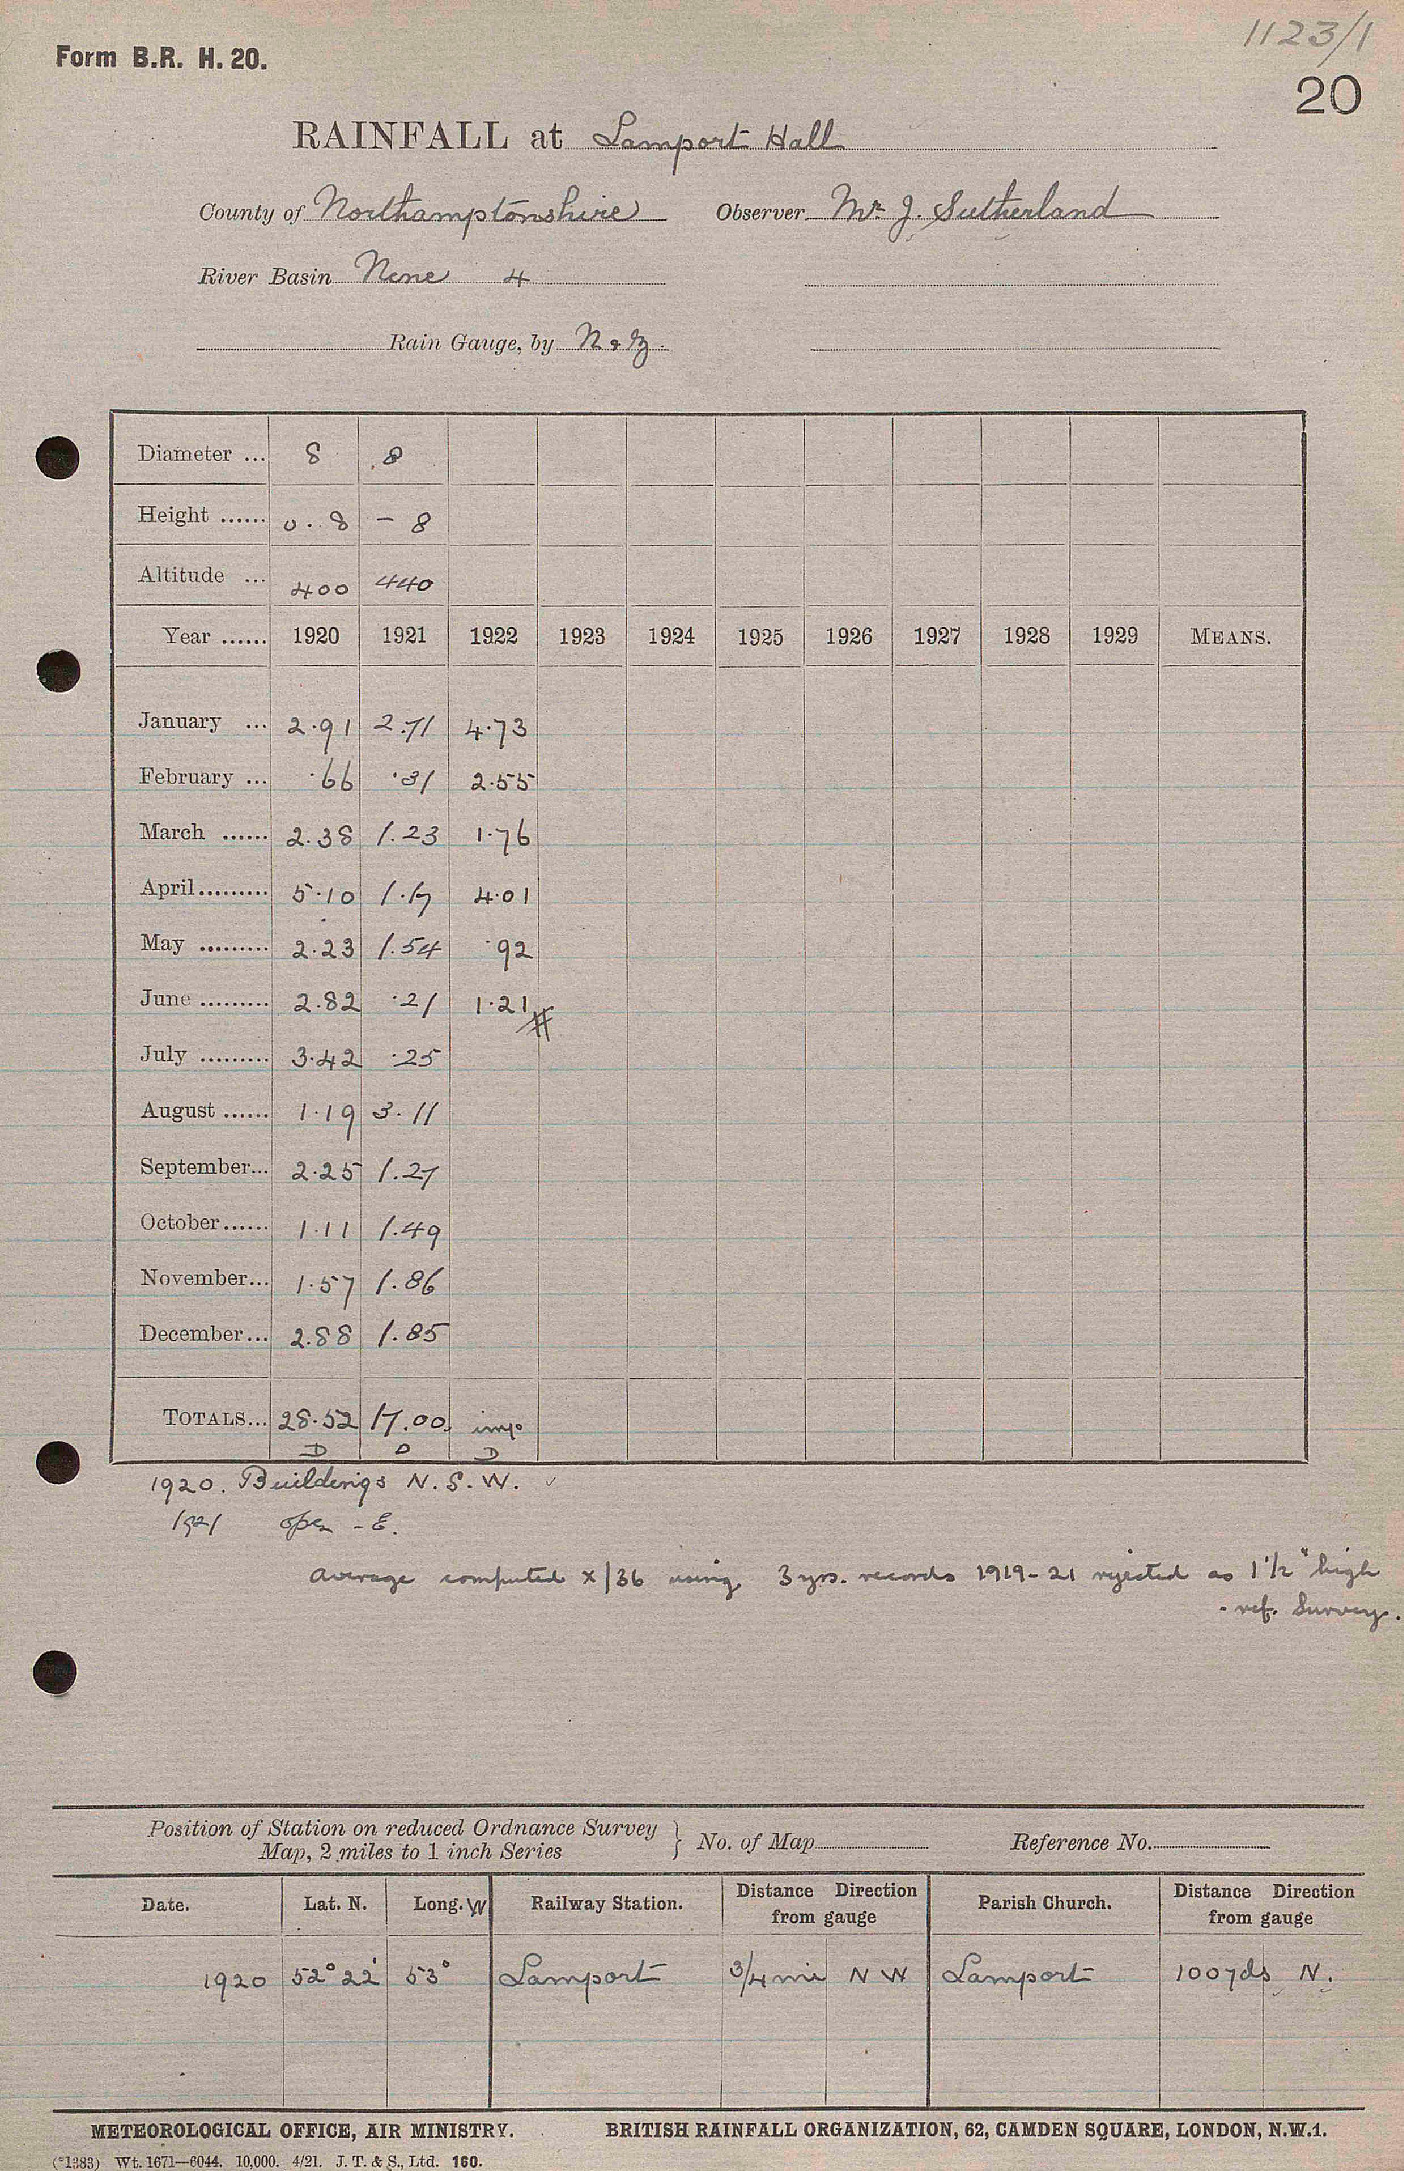 1123/1
Form B.R. H. 20.
20
RAINFALL at Lamport Hall
County of Northamptonshire Observer Mr. J. Sutherland
River Basin Nene 4
Rain Gauge, by N & Z.
Diameter ... 8 8
Height ...... 0. 8 - 8
Altitude ... 400 440
Year ...... 1920 1921 1922 1923 1924 1925 1926 1927 1928 1929 MEANS.
January ... 2.91 2.71 4.73
February ... .66 .31 2.55
March ...... 2.38 1.23 1.76
April......... 5.10 1.17 4.01
May ......... 2.23 1.54 .92
June ......... 2.82 .21 1.21 #
July ......... 3.42 .25
August ...... 1.19 3.11
September... 2.25 1.27
October...... 1.11 1.49
November... 1.57 1.86
December... 2.88 1.85
TOTALS... 28.52 17.00 imp
D D D
1920. Buildings N. S. W. ✓
1921 open - E.
Average computed x/36 using 3 yrs. records 1919-21 rejected as 1 1/2" high
- ref. Survey.
Position of Station on reduced Ordnance Survey
Map, 2 miles to 1 inch Series } No. of Map Reference No.
Date. Lat. N. Long. W Railway Station. Distance Direction from gauge Parish Church. Distance Direction from gauge
1920 52° 22' 53° Lamport 3/4 mi N W Lamport 100 yds N.
METEOROLOGICAL OFFICE, AIR MINISTRY. BRITISH RAINFALL ORGANIZATION, 62, CAMDEN SQUARE, LONDON, N.W.1.
(*1383) Wt. 1671—6044. 10,000. 4/21. J. T. & S., Ltd. 160.